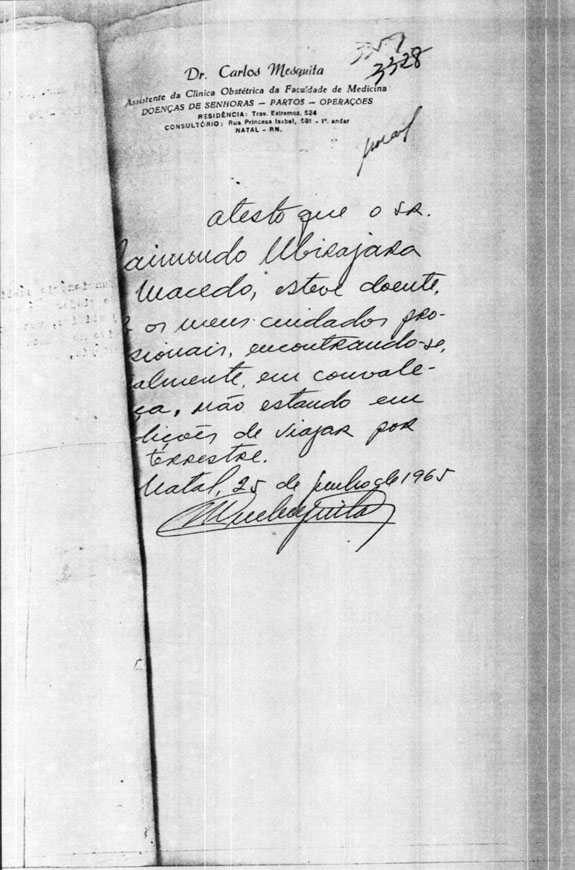 3328
Dr. Carlos Mesquita
Assistente da Clinica Obstétrica da Faculdade de Medicina
DOENÇAS DE SENHORAS — PARTOS — OPERAÇÕES
RESIDÊNCIA: Trav. Extremoz, 524
CONSULTÓRIO: Rua Princesa Isabel, 581 - 1º. andar
NATAL - RN.
atesto que o sr.
aimundo Ubirajara
Macedo, esteve doente,
os meus cuidados pro-
sionais, encontrando-se,
almente, em convale-
ça, não estando em
dições de viajar por
terrestre.
Natal, 25 de junho de 1965